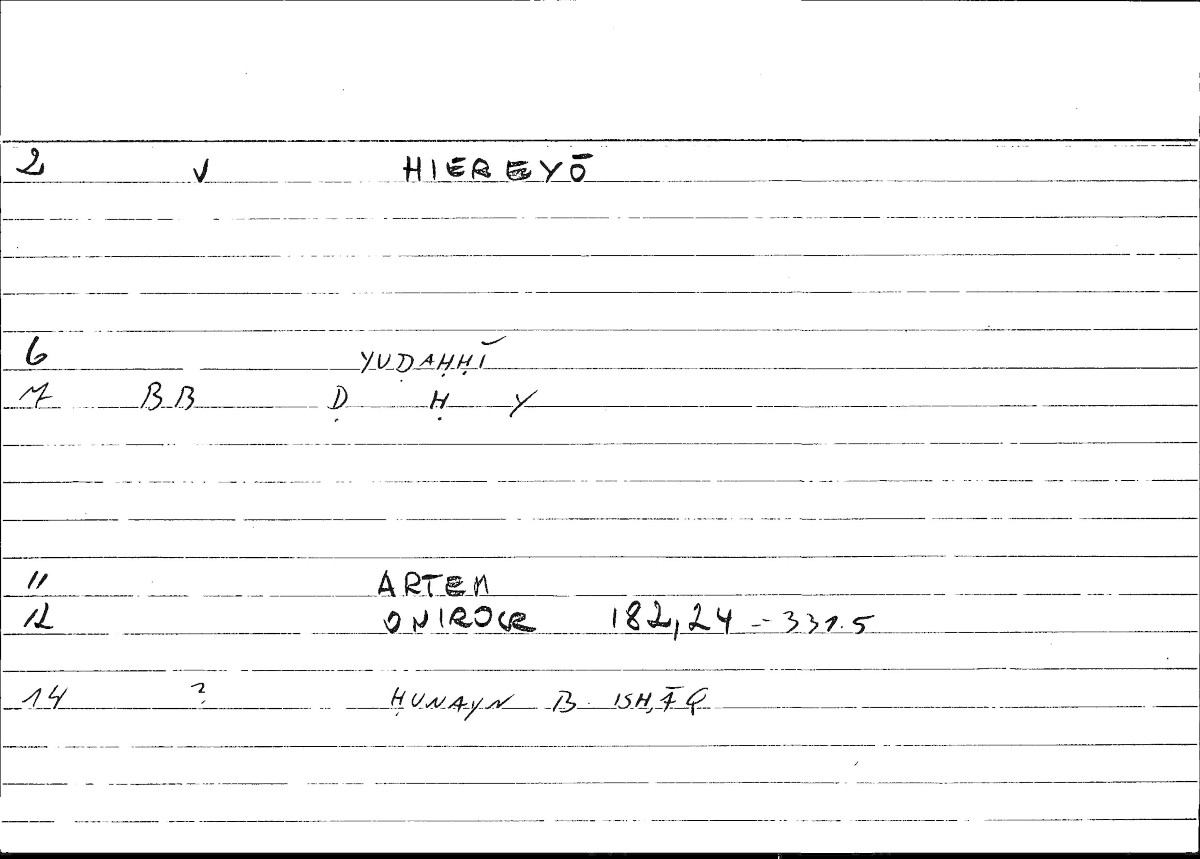 2 V HIEREYŌ
6 YUḌAḤḤĪ
7 BB Ḍ Ḥ Y
11 ARTEM
12 ONIROCR 182,24 = 331.5
14 ? ḤUNAYN B. ISḤĀQ